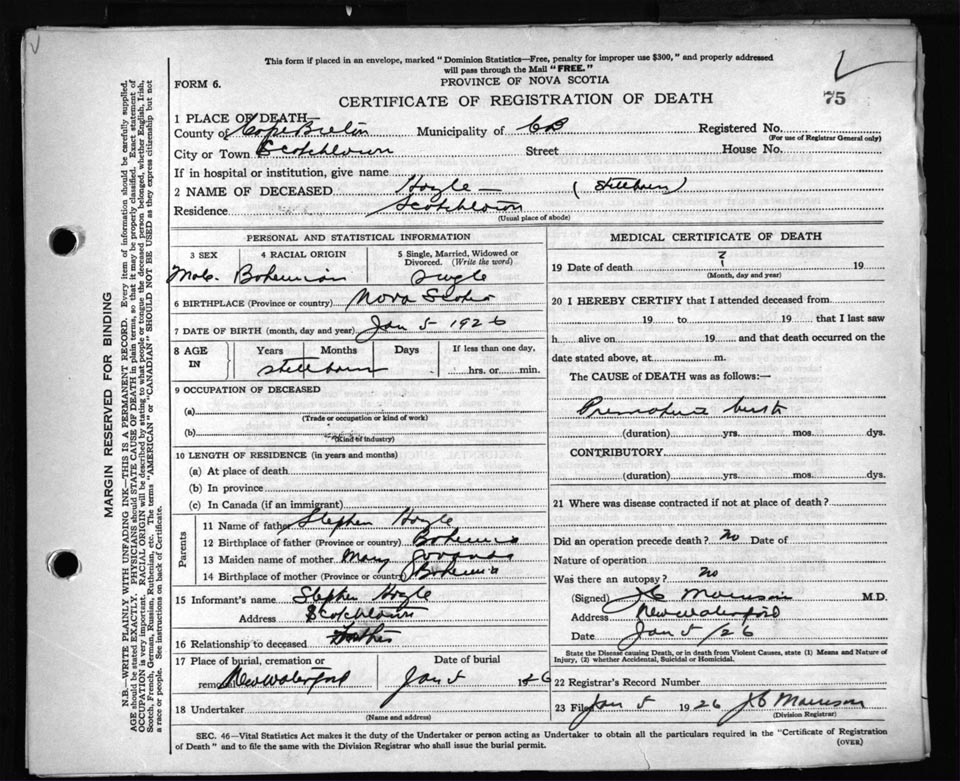 This form if placed in an envelope, marked "Dominion Statistics—Free, penalty for improper use $300," and properly addressed
will pass through the Mail "FREE."
FORM 6.
PROVINCE OF NOVA SCOTIA
75
CERTIFICATE OF REGISTRATION OF DEATH
1 PLACE OF DEATH
County of Cape Breton Municipality of CB Registered No.
(For use of Registrar General only)
City or Town Scotchtown Street House No.
If in hospital or institution, give name
2 NAME OF DECEASED Hoyle — (Stillborn)
Residence Scotchtown
(Usual place of abode)
PERSONAL AND STATISTICAL INFORMATION
3 SEX 4 RACIAL ORIGIN 5 Single, Married, Widowed or Divorced. (Write the word)
Male. Bohemian Single
6 BIRTHPLACE (Province or country) Nova Scotia
7 DATE OF BIRTH (month, day and year) Jan 5 1926
8 AGE IN Years Months Days If less than one day,
Stillborn hrs. or min.
9 OCCUPATION OF DECEASED
(a)
(Trade or occupation or kind of work)
(b)
(Kind of industry)
10 LENGTH OF RESIDENCE (in years and months)
(a) At place of death
(b) In province
(c) In Canada (if an immigrant)
Parents
11 Name of father Stephen Hoyle
12 Birthplace of father (Province or country) Bohemia
13 Maiden name of mother Mary
14 Birthplace of mother (Province or country) Bohemia
15 Informant's name Stephen Hoyle
Address Scotchtown
16 Relationship to deceased Father
17 Place of burial, cremation or removal New Waterford Date of burial Jan 5 1926
18 Undertaker
(Name and address)
MEDICAL CERTIFICATE OF DEATH
19 Date of death ? 19
(Month, day and year)
20 I HEREBY CERTIFY that I attended deceased from
19 to 19 that I last saw
h alive on 19 and that death occurred on the
date stated above, at m.
The CAUSE of DEATH was as follows:—
Premature birth
(duration) yrs. mos. dys.
CONTRIBUTORY
(duration) yrs. mos. dys.
21 Where was disease contracted if not at place of death?
Did an operation precede death? No Date of
Nature of operation
Was there an autopsy? No
(Signed) J C Morrison M.D.
Address New Waterford
Date Jan 5/26
State the Disease causing Death, or in death from Violent Causes, state (1) Means and Nature of
Injury, (2) whether Accidental, Suicidal or Homicidal.
22 Registrar's Record Number
23 Filed Jan 5 1926 J C Morrison
(Division Registrar)
SEC. 46—Vital Statistics Act makes it the duty of the Undertaker or person acting as Undertaker to obtain all the particulars required in the "Certificate of Registration
of Death" and to file the same with the Division Registrar who shall issue the burial permit.
(OVER)
MARGIN RESERVED FOR BINDING
N.B.—WRITE PLAINLY, WITH UNFADING INK—THIS IS A PERMANENT RECORD. Every item of information should be carefully supplied.
AGE should be stated EXACTLY. PHYSICIANS should STATE CAUSE OF DEATH in plain terms, so that it may be properly classified. Exact statement of
OCCUPATION is very important. RACIAL ORIGIN will be described by stating to what people or tongue the deceased person belonged, whether English, Irish,
Scotch, French, German, Russian, Ruthenian, etc. The terms "AMERICAN" or "CANADIAN" SHOULD NOT BE USED as they express citizenship but not
a race or people. See instructions on back of Certificate.